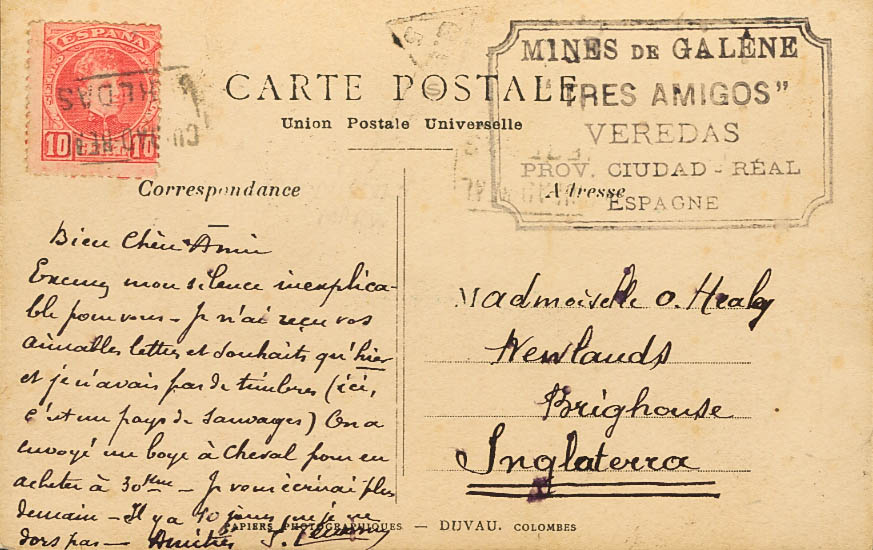 ESPAÑA
10 CENT. 10
MINES DE GALÈNE
"TRES AMIGOS"
VEREDAS
PROV. CIUDAD-RÉAL
ESPAGNE
CARTE POSTALE
Union Postale Universelle
Correspondance
Adresse
Bien Chère Amie
Excusez mon silence inexplica-
ble pour vous – Je n'ai reçu vos
aimables lettres et souhaits qu'hier
et je n'avais pas de timbres (ici,
c'est un pays de sauvages) On a
envoyé un boy à cheval pour en
acheter à 30 – Je vous écrirai plus
demain – Il y a 10 jours que je ne
dors pas – Amitiés
Madmoiselle O. Healy
Newlands
Brighouse
Inglaterra
PAPIERS PHOTOGRAPHIQUES — DUVAU. COLOMBES